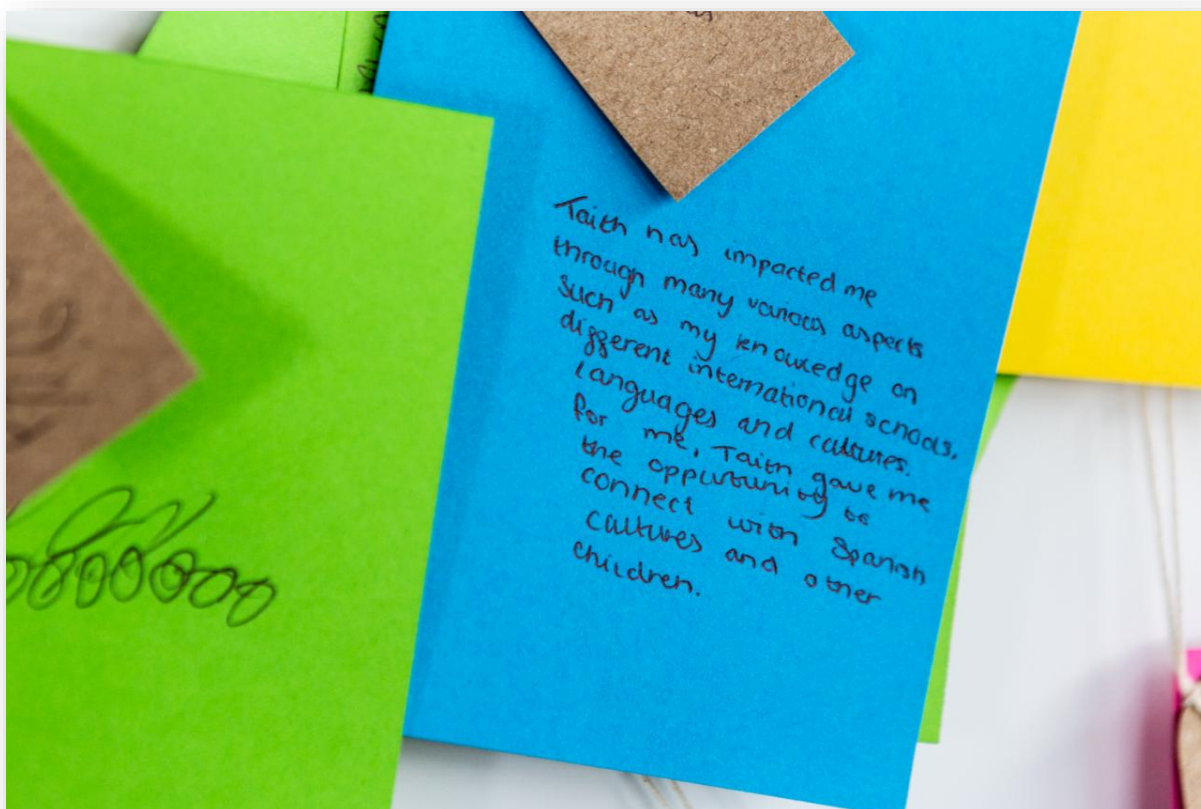 Taith has impacted me
through many various aspects
such as my knowledge on
different international schools,
languages and cultures.
For me, Taith gave me
the oppurtunity to
connect with Spanish
cultures and other
children.